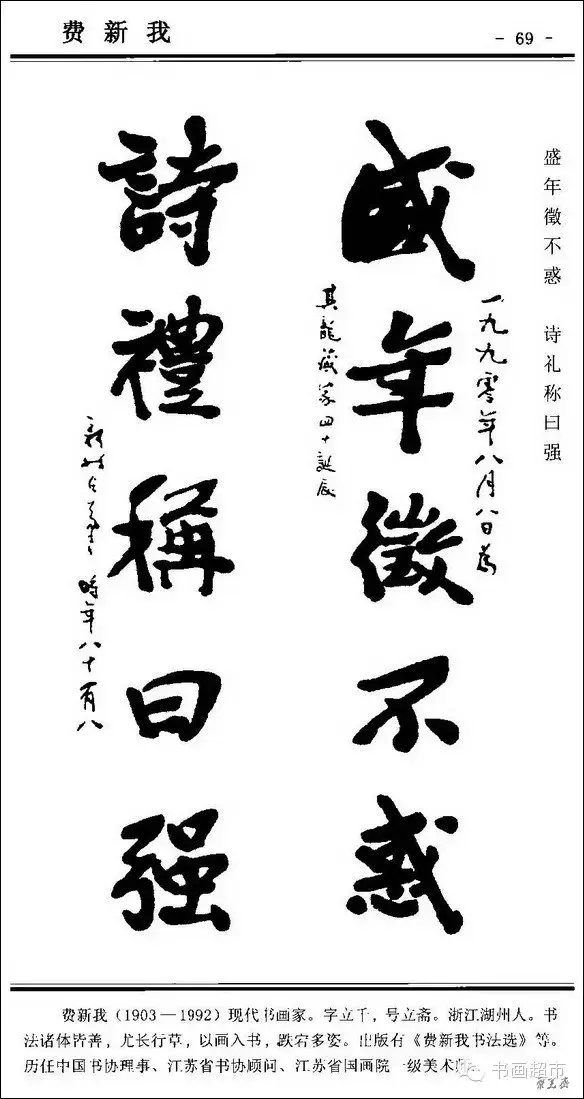 费新我
- 69 -
盛年徵不惑 诗礼称曰强
一九九零年八月八日为
盛年徵不惑
其龍藏家四十誕辰
詩禮稱曰强
時年八十有八
费新我(1903—1992)现代书画家。字立千,号立斋。浙江湖州人。书
法诸体皆善,尤长行草,以画入书,跌宕多姿。出版有《费新我书法选》等。
历任中国书协理事、江苏省书协顾问、江苏省国画院一级美术师
书画超市